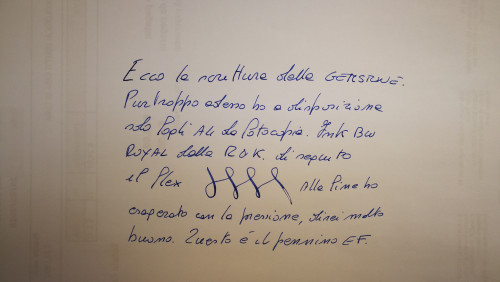 Ecco la scrittura della GEMSTONE.
Purtroppo adesso ho a disposizione
solo Fogli A4 da Fotocopia. Ink Blu
ROYAL della R&K. di seguito
il Flex Alla Fine ho
esagerato con la pressione, direi molto
buono. Questo è il pennino EF.